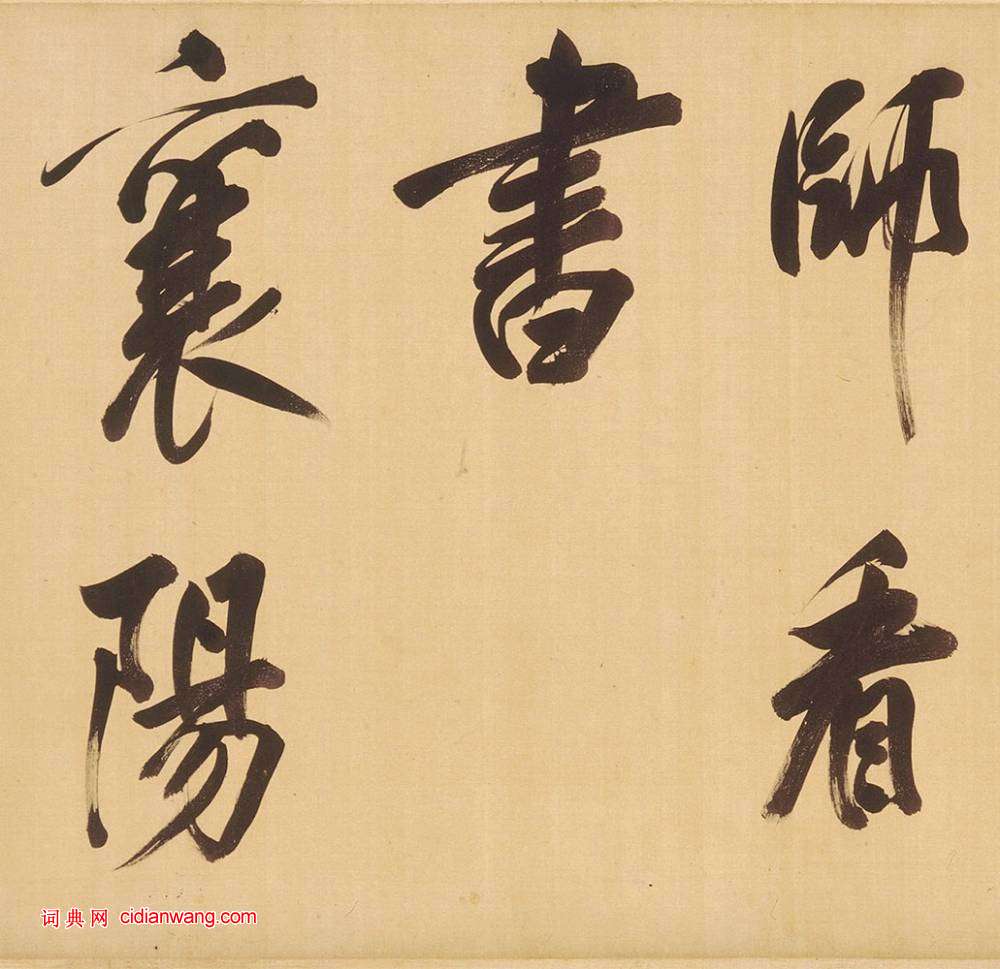 師看
書
襄陽
词典网 cidianwang.com